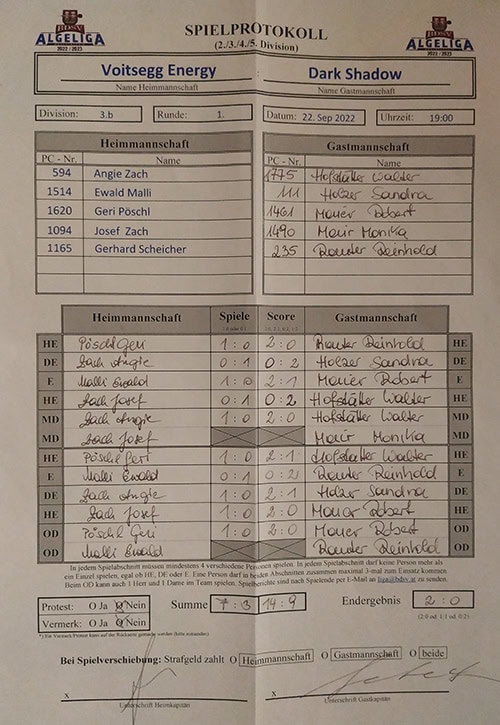 BDSV
ALGELIGA
2022 / 2023
SPIELPROTOKOLL
(2./3./4./5. Division)
BDSV
ALGELIGA
2022 / 2023
Voitsegg Energy Dark Shadow
Name Heimmannschaft Name Gastmannschaft
Division: 3.b Runde: 1. Datum: 22. Sep 2022 Uhrzeit: 19:00
Heimmannschaft Gastmannschaft
PC - Nr. Name PC - Nr. Name
594 Angie Zach 1775 Hofstätter Walter
1514 Ewald Malli 111 Holzer Sandra
1620 Geri Pöschl 1461 Maurer Robert
1094 Josef Zach 1490 Maur Monika
1165 Gerhard Scheicher 235 Reinhold
Heimmannschaft Spiele Score Gastmannschaft
HE Pöschl Geri 1:0 2:0 Reinhold HE
DE Zach Angie 0:1 0:2 Holzer Sandra DE
E Malli Ewald 1:0 2:1 Robert E
HE Zach Josef 0:1 0:2 Hofstätter Walter HE
MD Zach Angie 1:0 2:0 Hofstätter Walter MD
MD Zach Josef Monika MD
HE Pöschl Geri 1:0 2:1 Hofstätter Walter HE
E Malli Ewald 0:1 0:2 Reinhold E
DE Zach Angie 1:0 2:1 Holzer Sandra DE
HE Zach Josef 1:0 2:0 Robert HE
OD Pöschl Geri 1:0 2:0 Robert OD
OD Malli Ewald Reinhold OD
In jedem Spielabschnitt müssen mindestens 4 verschiedene Personen spielen. In jedem Spielabschnitt darf keine Person mehr als
ein Einzel spielen, egal ob HE, DE oder E. Eine Person darf in beiden Abschnitten zusammen maximal 3-mal zum Einsatz kommen.
Beim OD kann auch 1 Herr und 1 Dame im Team spielen. Spielberichte sind nach Spielende per E-Mail an liga@bdsv.at zu senden.
Protest: O Ja O Nein Summe 7:3 14:9 Endergebnis 2:0
Vermerk: O Ja O Nein (2:0 od. 1:1 od. 0:2)
Bei Spielverschiebung: Strafgeld zahlt O Heimmannschaft O Gastmannschaft O beide
x x
Unterschrift Heimkapitän Unterschrift Gastkapitän